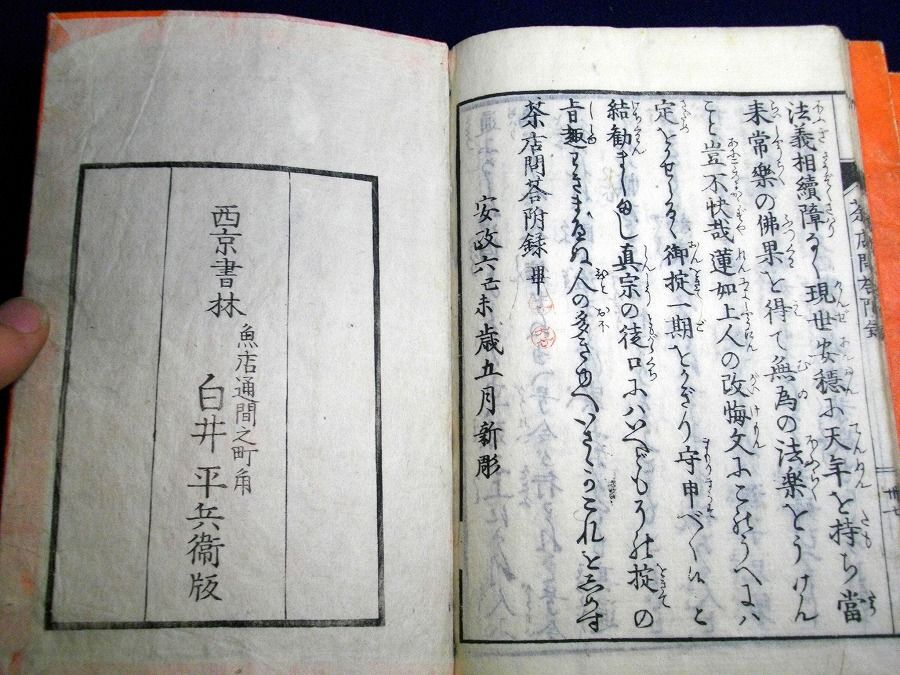 法義相續障なく現世安穏に天年を持ち當
来常樂の佛果を得て無為の法樂をうけん
こと豈不快哉蓮如上人の改悔文にこのうへは
定めをかせらるゝ御掟一期をかぎり守申べく候と
結勸まし〳〵真宗の徒口にはいへども其掟の
旨趣わきまへぬ人の多きゆへいさゝかこれを
茶店問荅附録 畢
安政六己未歳五月新彫
茶店問荅附録
卅七
西京書林
魚店通間之町角
白井平兵衞版